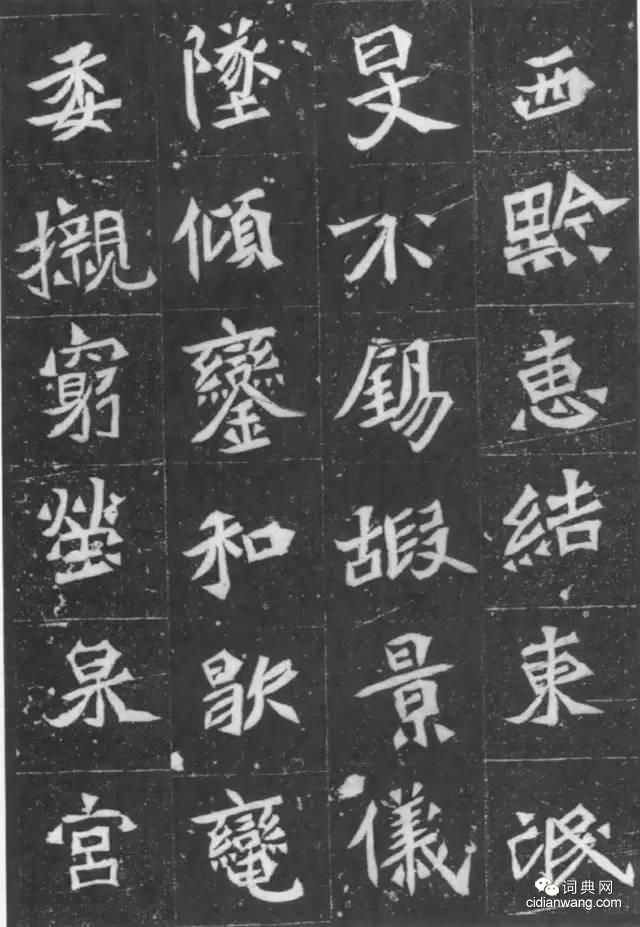 西黔惠結東泯
旻不錫嘏景儀
墜傾鑾和歇
委櫬窮塋泉宮
词典网
cidianwang.com